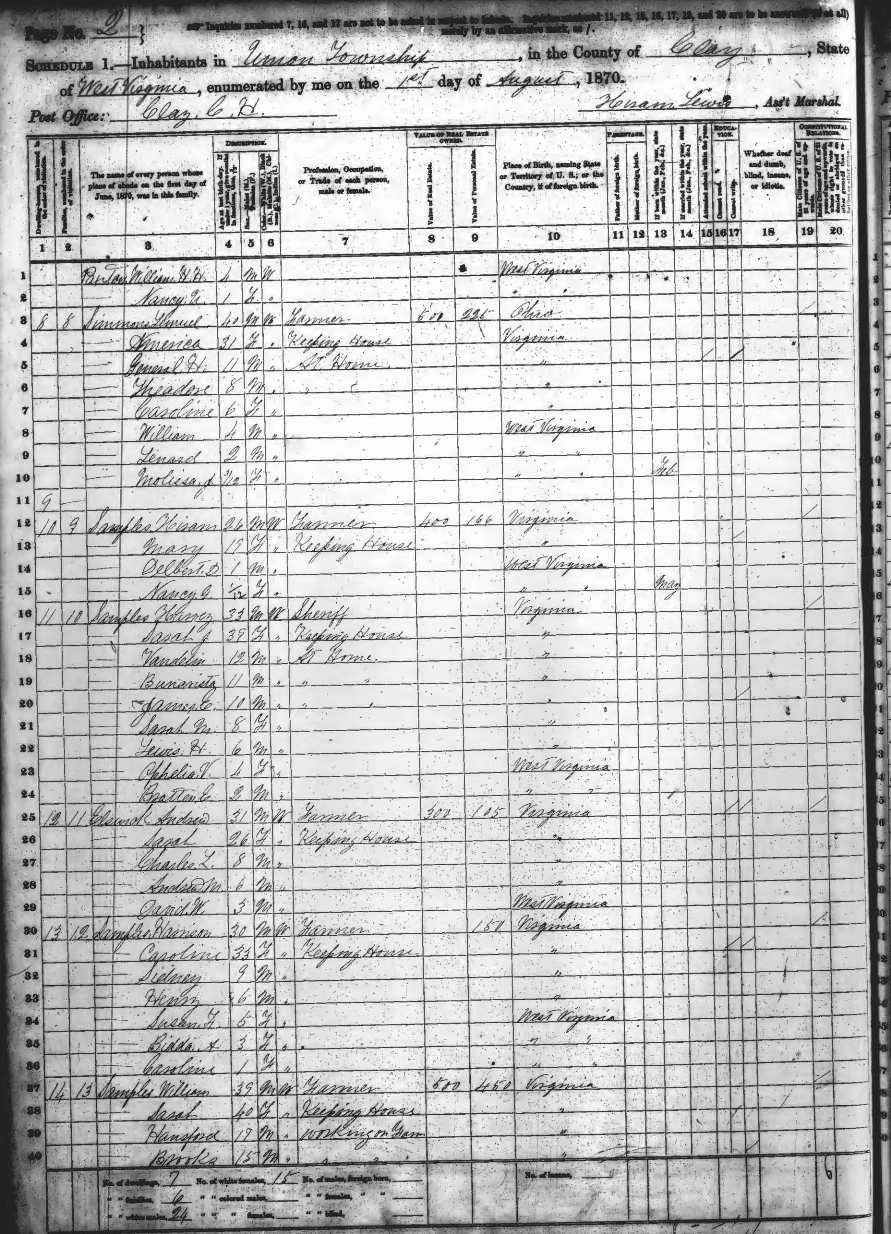 Page No. 2
Inquiries numbered 7, 16, and 17 are not to be asked in respect to infants. Inquiries numbered 11, 12, 15, 16, 17, 19, and 20 are to be answered (if at all)
merely by an affirmative mark, as /.
SCHEDULE 1.—Inhabitants in Union Township, in the County of Clay, State
of West Virginia, enumerated by me on the 1st day of August, 1870.
Post Office: Clay C. H.
Hiram Lewis, Ass't Marshal.
DESCRIPTION. VALUE OF REAL ESTATE OWNED. PARENTAGE. EDUCATION. CONSTITUTIONAL RELATIONS.
The name of every person whose place of abode on the first day of June, 1870, was in this family.
Profession, Occupation, or Trade of each person, male or female.
Value of Real Estate.
Value of Personal Estate.
Place of Birth, naming State or Territory of U. S.; or the Country, if of foreign birth.
Father of foreign birth.
Mother of foreign birth.
Whether deaf and dumb, blind, insane, or idiotic.
1 2 3 4 5 6 7 8 9 10 11 12 13 14 15 16 17 18 19 20
1 William H. H. 4 M W West Virginia
2 Nancy 1 F " " "
3 8 8 Simmons Lemuel 40 M W Farmer 500 225 Ohio /
4 America 31 F " Keeping House Virginia
5 General H. 11 M " At Home " / /
6 Theadore 8 M " " "
7 Caroline 6 F " "
8 William 4 M " West Virginia
9 Lenard 2 M " " "
10 Molissa J F " " " Feb
11 9
12 10 9 Samples Hiram 26 M W Farmer 400 166 Virginia /
13 Mary 19 F " Keeping House " /
14 Delbert D 1 M " West Virginia
15 Nancy J. 1/12 F " " " May
16 11 10 Samples Harvey 33 M W Sheriff Virginia /
17 Sarah J 39 F " Keeping House "
18 Vandelin 12 M " At Home "
19 11 M " " " "
20 James C. 10 M " " " " /
21 Sarah M 8 F " "
22 Lewis H. 6 M " "
23 Ophelia V. 4 F " West Virginia
24 Bratten C. 2 M " " "
25 12 11 Andrew 31 M W Farmer 300 105 Virginia / / /
26 Sarah 26 F " Keeping House "
27 Charles L. 8 M " "
28 Andrew M. 6 M " "
29 David W. 3 M " West Virginia
30 13 12 Samples Harrison 30 M W Farmer 150 Virginia /
31 Caroline 33 F " Keeping House " / /
32 Sidney 9 M " "
33 Henry 6 M " "
34 Susan F. 5 F " West Virginia
35 Bidda A 3 F " " "
36 Caroline 1 F " " "
37 14 13 Samples William 39 M W Farmer 500 450 Virginia /
38 Sarah 40 F " Keeping House " /
39 Hansford 19 M " Working on Farm "
40 Brooks 15 M " " " " " /
No. of dwellings, 7 No. of white females, 15 No. of males, foreign born, No. of insane, 6
" " families, 6 " " colored males, " " females, " "
" " white males, 24 " " " females, " " blind,